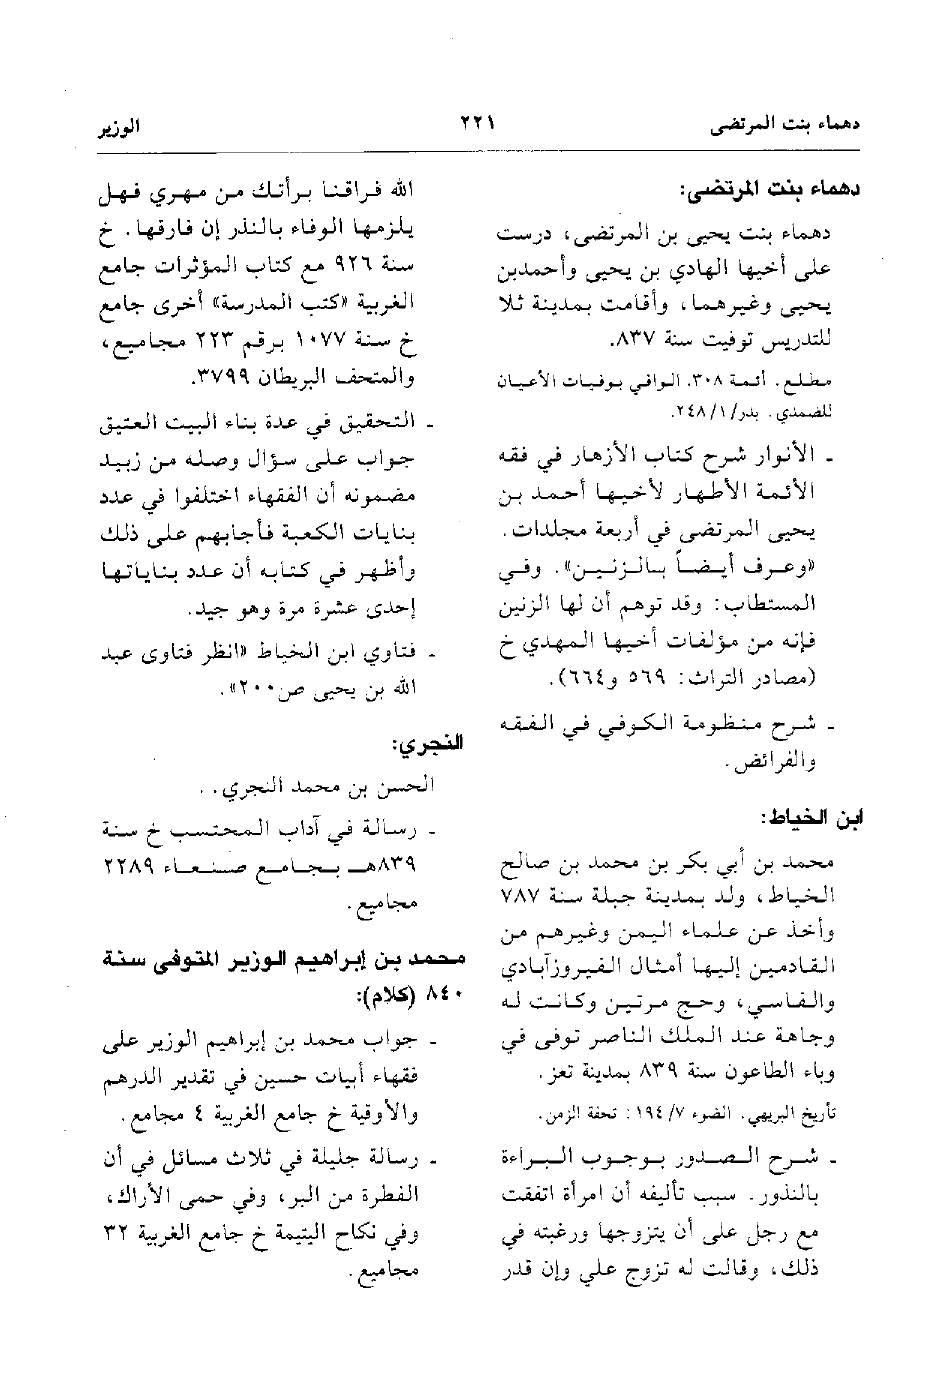 دهماء بنت المرتضى ٢٢١ الوزير
دهماء بنت المرتضى:
دهماء بنت يحيى بن المرتضى، درست
على أخيها الهادي بن يحيى وأحمدبن
يحيى وغيرهما، وأقامت بمدينة ثلا
للتدريس توفيت سنة ٨٣٧.
مطلع. أئمة ٣٠٨. الوافي بوفيات الأعيان
للضمدي. بدر/٢٤٨/١.
- الأنوار شرح كتاب الأزهار في فقه
الأئمة الأطهار لأخيها أحمد بن
يحيى المرتضى في أربعة مجلدات.
«وعرف أيضاً بالزنين». وفي
المستطاب: وقد توهم أن لها الزنين
فإنه من مؤلفات أخيها المهدي خ
(مصادر التراث: ٥٦٩ و٦٦٤).
- شرح منظومة الكوفي في الفقه
والفرائض.
ابن الخياط:
محمد بن أبي بكر بن محمد بن صالح
الخياط، ولد بمدينة جبلة سنة ٧٨٧
وأخذ عن علماء اليمن وغيرهم من
القادمين إليها أمثال الفيروزآبادي
والفاسي، وحج مرتين وكانت له
وجاهة عند الملك الناصر توفى في
وباء الطاعون سنة ٨٣٩ بمدينة تعز.
تأريخ البريهي. الضوء ١٩٤/٧: تحفة الزمن.
- شرح الصدور بوجوب البراءة
بالنذور. سبب تأليفه أن امرأة اتفقت
مع رجل على أن يتزوجها ورغبته في
ذلك، وقالت له تزوج علي وإن قدر
الله فراقنا برأتك من مهري فهل
يلزمها الوفاء بالنذر إن فارقها. خ
سنة ٩٢٦ مع كتاب المؤثرات جامع
الغربية «كتب المدرسة» أخرى جامع
خ سنة ١٠٧٧ برقم ٢٢٣ مجاميع،
والمتحف البريطان ٣٧٩٩.
- التحقيق في عدة بناء البيت العتيق
جواب على سؤال وصله من زبيد
مضمونه أن الفقهاء اختلفوا في عدد
بنايات الكعبة فأجابهم على ذلك
وأظهر في كتابه أن عدد بناياتها
إحدى عشرة مرة وهو جيد.
- فتاوي ابن الخياط «انظر فتاوى عبد
الله بن يحيى ص٢٠٠».
النجري:
الحسن بن محمد النجري..
- رسالة في آداب المحتسب خ سنة
٨٣٩هـ بجامع صنعاء ٢٢٨٩
مجاميع.
محمد بن إبراهيم الوزير المتوفى سنة
٨٤٠ (كلام):
- جواب محمد بن إبراهيم الوزير على
فقهاء أبيات حسين في تقدير الدرهم
والأوقية خ جامع الغربية ٤ مجامع.
- رسالة جليلة في ثلاث مسائل في أن
الفطرة من البر، وفي حمى الأراك،
وفي نكاح اليتيمة خ جامع الغربية ٣٢
مجاميع.